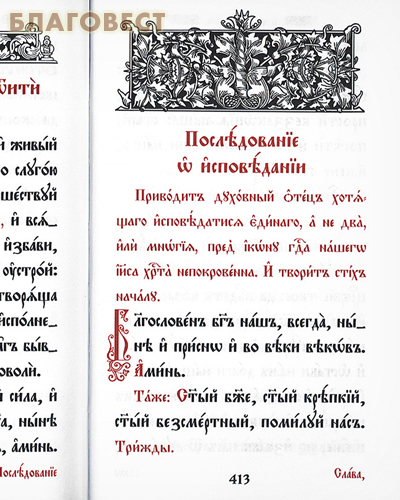 БЛАГОВЕСТ
ѻ҆́сити̑
й живы́й
о слꙋго́ю
ше́ствꙋй
, и҆ всѧ̀
и҆зба́ви,
ᲂу҆стро́й:
творѧ́ща
и҆спо́лне_
а́гъ вы́в_
во́ли.
й си́ла, и҆
а, ны́нѣ
, а҆ми́нь.
Послѣ́дованїе
Послѣ́дованїе
ѡ҆ и҆сповѣ́данїи
Приво́дитъ дꙋхо́вный ѻ҆те́цъ хотѧ́_
щаго и҆сповѣ́датисѧ є҆ди́наго, а҆ не два̀,
и҆лѝ мнѡ́гїѧ, пред̾ і҆кѡ́нꙋ гд҇а на́шегѡ
і҆и҃са хрⷭ҇та̀ непокрове́нна. И҆ твори́тъ сті́хъ
нача́лꙋ.
Благослове́нъ бг҃ъ на́шъ, всегда̀, ны́_
нѣ и҆ при́снѡ и҆ во вѣ́ки вѣкѡ́въ.
А҆ми́нь.
Та́же: Ст҃ы́й бж҃е, ст҃ы́й крѣ́пкїй,
ст҃ы́й безсме́ртный, поми́лꙋй на́съ.
Три́жды.
413
Сла́ва,